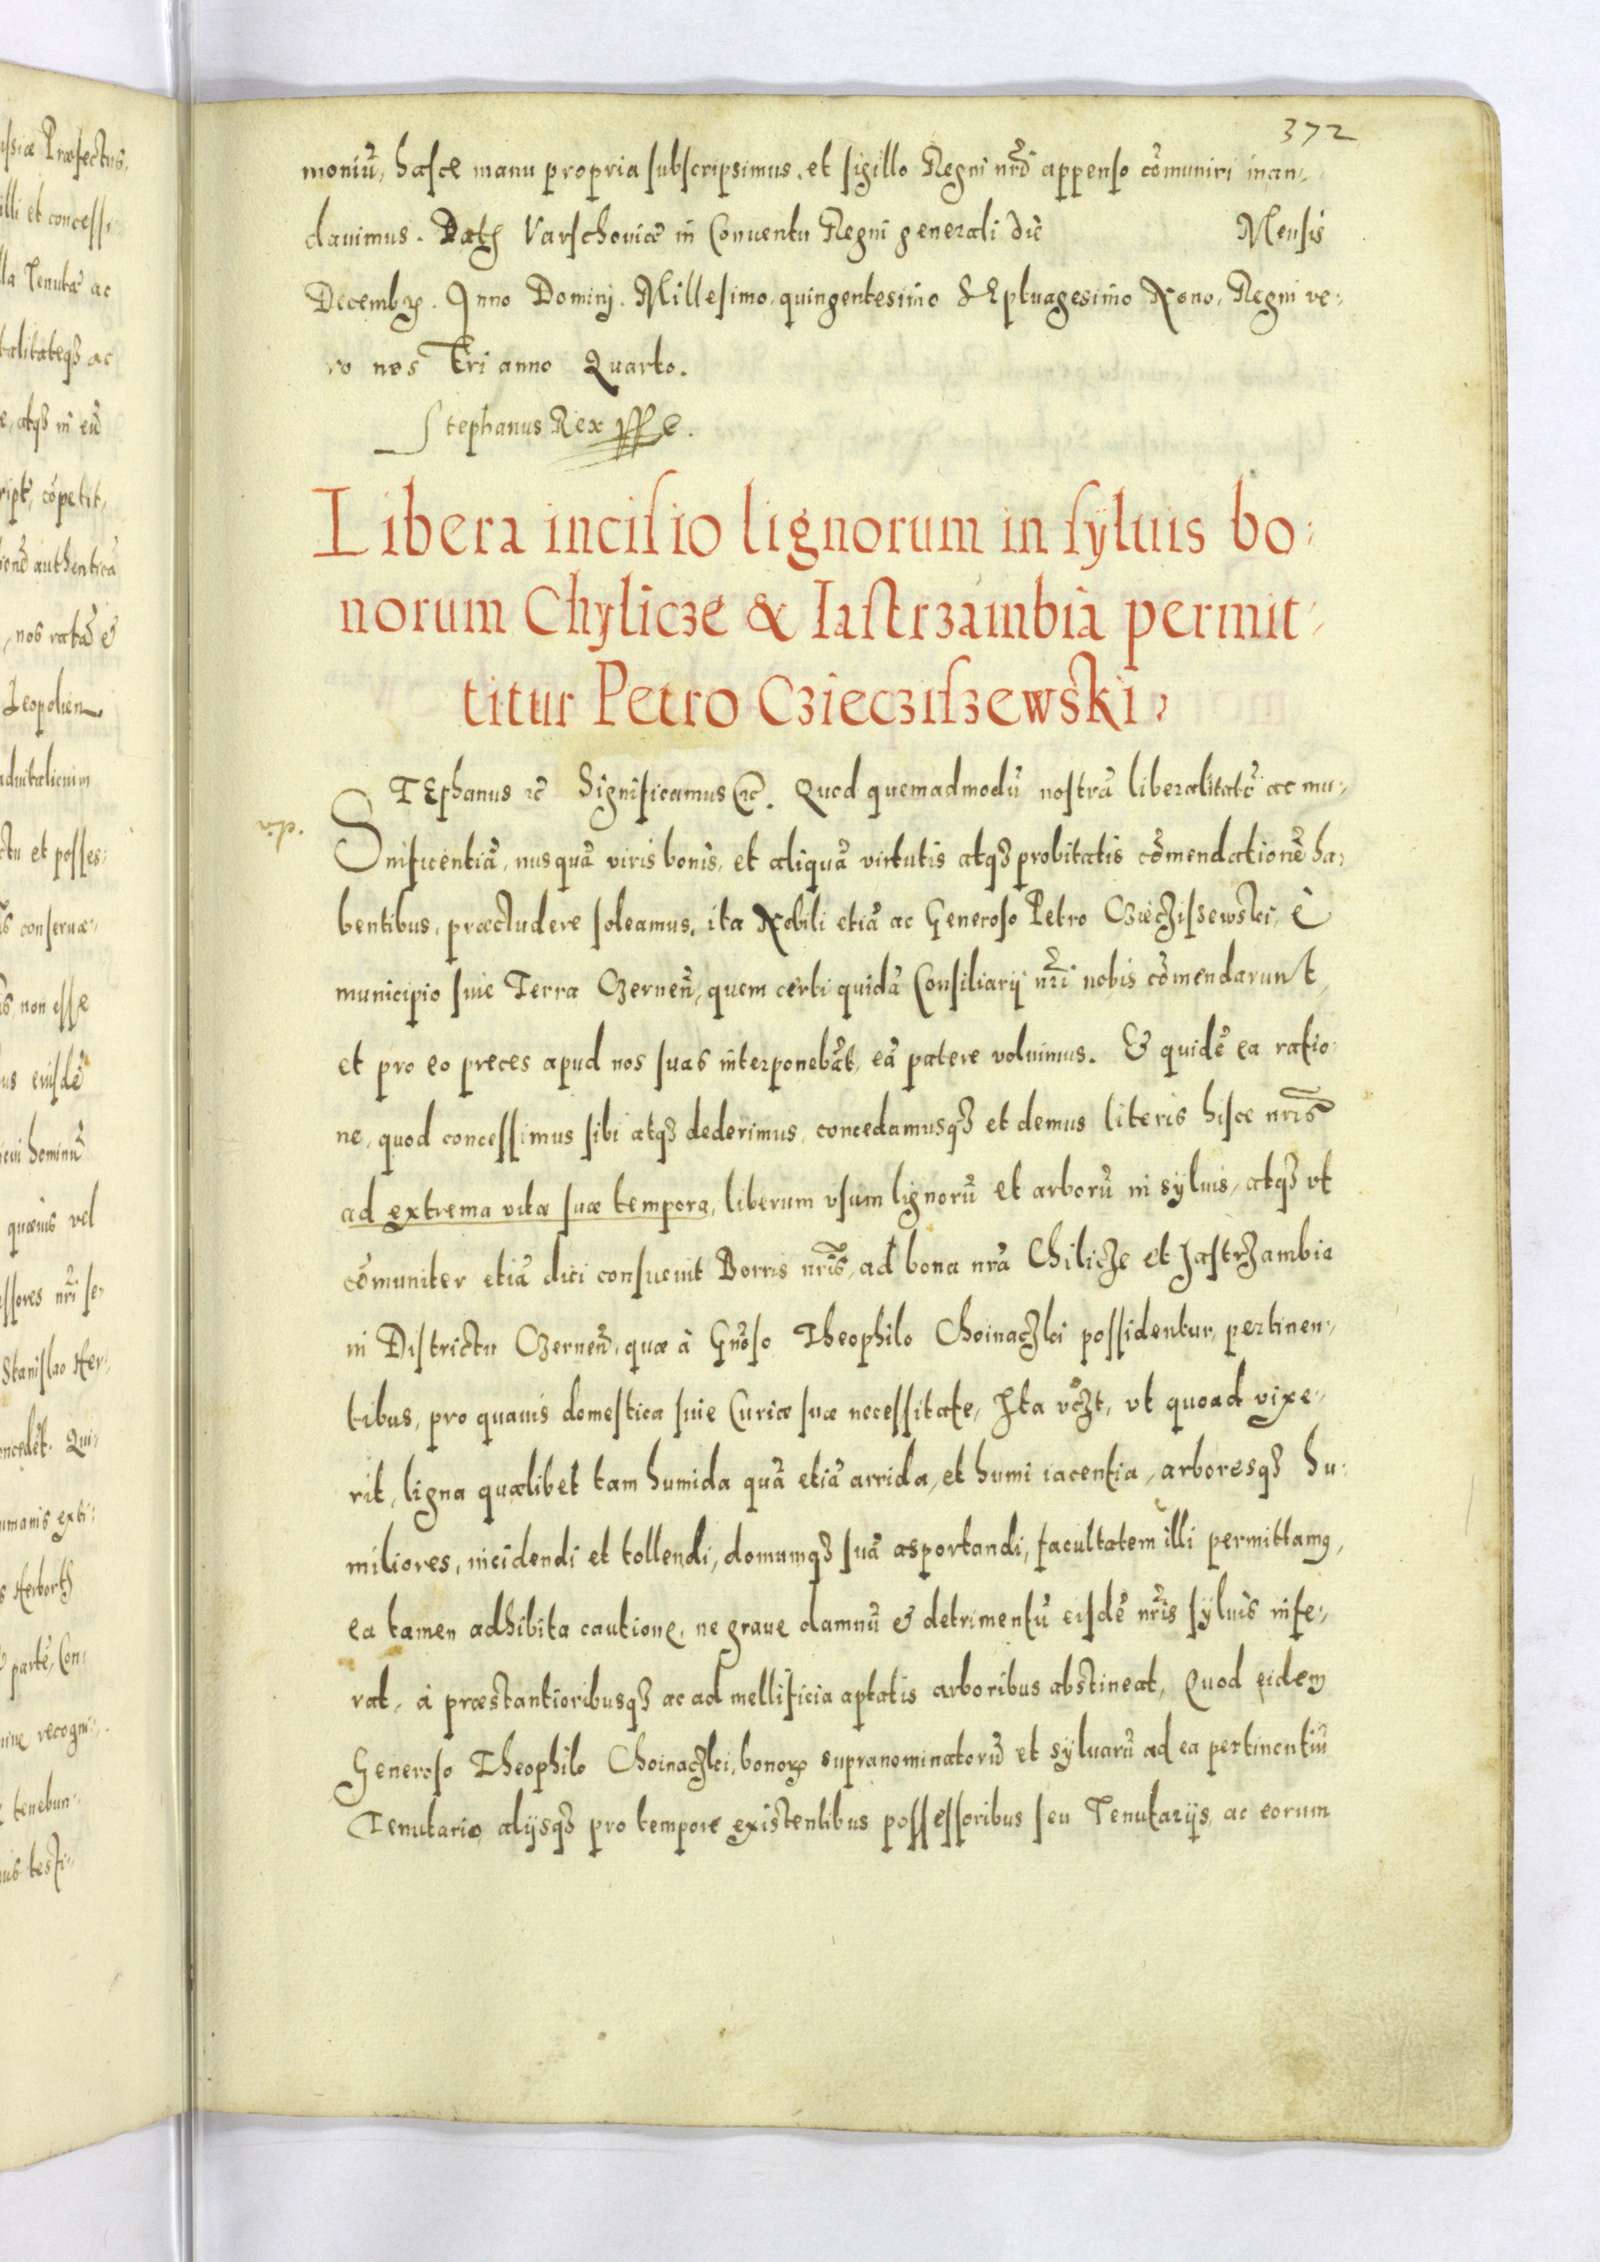 372
moniũ, hasce manu propria subscripsimus, et sigillo Regni nr̃o appenso cõmuniri man-
dauimus. Datꝭ Varschoviæ in Conuentu Regni generali die Mensis
Decembrꝭ. Anno Dominj. Millesimo, quingentesimo SEptuagesimo Nono, Regni ve-
ro nosTri anno Quarto.
Stephanus Rex
Libera incisio lignorum in syluis bo-
norum Chylicze & Iastrzambia permit-
titur Petro Cziecziszewski
STEphanus ꝛc̃ Significamus ꝛc̃. Quod quemadmodũ nostrã liberalitatẽ ac mu-
nificentiã, nusquã viris bonis, et aliquã virtutis atqꝫ probitatis cõmendationẽ ha-
bentibus, præcludere soleamus, ita Nobili etiã ac Generoso Petro Cziecziszewski, è
municipio siue Terra Czerneñ, quem certi quidã Consiliarij nr̃i nobis cõmendarunt,
et pro eo preces apud nos suas interponebãt, eã patere voluimus. Et quidẽ ea ratio-
ne, quod concessimus sibi atqꝫ dederimus, concedamusqꝫ et demus literis hisce nr̃is
ad extrema vitæ suæ tempora, liberum vsum lignorũ et arborũ in syluis, atqꝫ vt
cõmuniter etiã dici consueuit Borris nr̃is, ad bona nr̃a Chilicze et Jastrzambia
in Districtu Czerneñ, quæ à Gñoso Theophilo Choinaczki possidentur, pertinen-
tibus, pro quauis domestica siue Curiæ suæ necessitate, Ita vcꝫt, vt quoad vixe-
rit, ligna quælibet tam humida quã etiã arrida, et humi iacentia, arboresqꝫ hu-
miliores, incidendi et tollendi, domumqꝫ suã asportandi, facultatem illi permittamꝰ,
ea tamen adhibita cautione, ne graue damnũ & detrimentũ eisdẽ nr̃is syluis infe-
rat, à præstantioribusqꝫ ac ad mellificia aptatis arboribus abstineat, Quod eidem
Generoso Theophilo Choinaczki, bonoꝝ supranominatorũ et syluarũ ad ea pertinentiũ
Tenutario, alijsqꝫ pro tempore existentibus possessoribus seu Tenutarijs, ac eorum